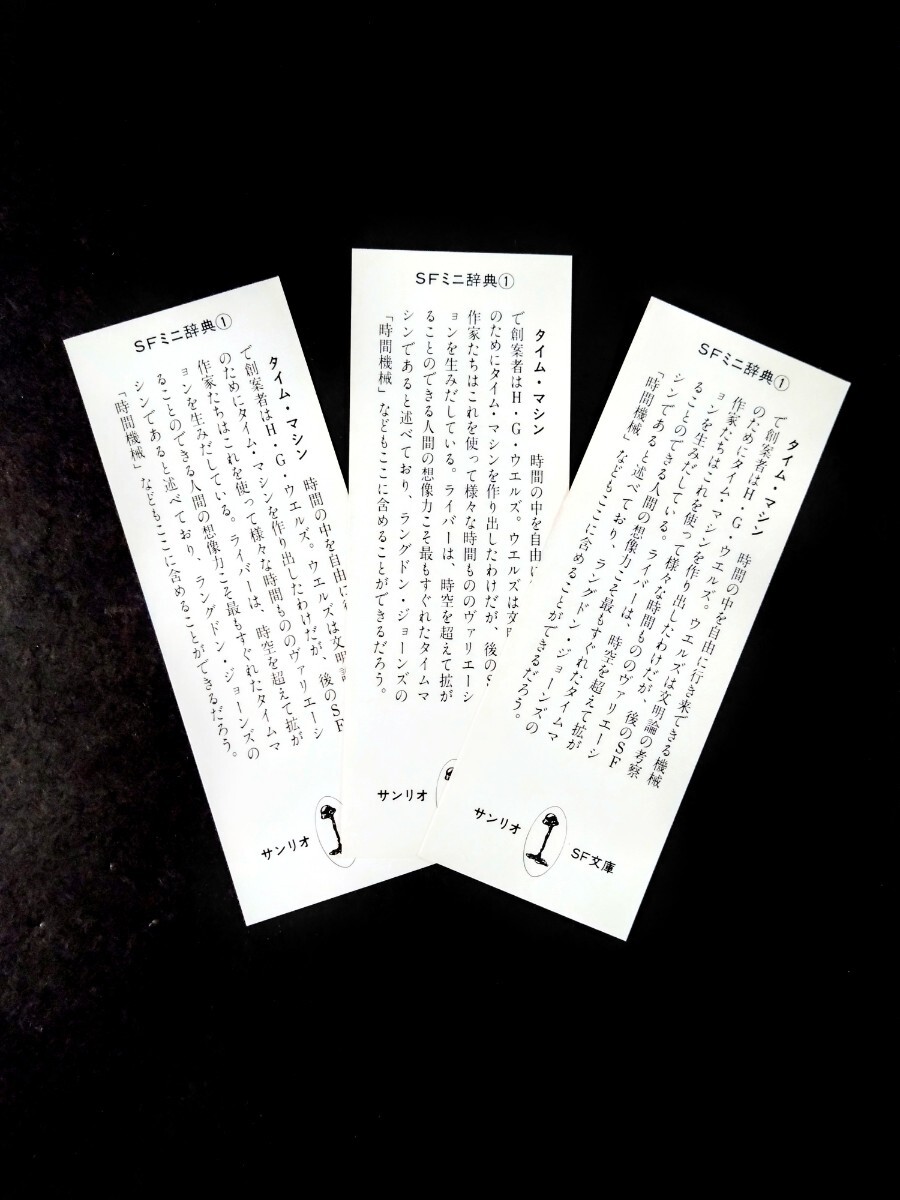 SFミニ辞典①
タイム・マシン 時間の中を自由に
で創案者はH・G・ウエルズ。ウエルズは文明
のためにタイム・マシンを作り出したわけだが、後のSF
作家たちはこれを使って様々な時間もののヴァリエーシ
ョンを生みだしている。ライバーは、時空を超えて拡が
ることのできる人間の想像力こそ最もすぐれたタイムマ
シンであると述べており、ラングドン・ジョーンズの
「時間機械」などもここに含めることができるだろう。
サンリオ
SFミニ辞典①
タイム・マシン 時間の中を自由に
で創案者はH・G・ウエルズ。ウエルズは文
のためにタイム・マシンを作り出したわけだが、後の
作家たちはこれを使って様々な時間もののヴァリエーシ
ョンを生みだしている。ライバーは、時空を超えて拡が
ることのできる人間の想像力こそ最もすぐれたタイムマ
シンであると述べており、ラングドン・ジョーンズの
「時間機械」などもここに含めることができるだろう。
サンリオ
SFミニ辞典①
タイム・マシン 時間の中を自由に行き来できる機械
で創案者はH・G・ウエルズ。ウエルズは文明論の考察
のためにタイム・マシンを作り出したわけだが、後のSF
作家たちはこれを使って様々な時間もののヴァリエーシ
ョンを生みだしている。ライバーは、時空を超えて拡が
ることのできる人間の想像力こそ最もすぐれたタイムマ
シンであると述べており、ラングドン・ジョーンズの
「時間機械」などもここに含めることができるだろう。
サンリオ SF文庫